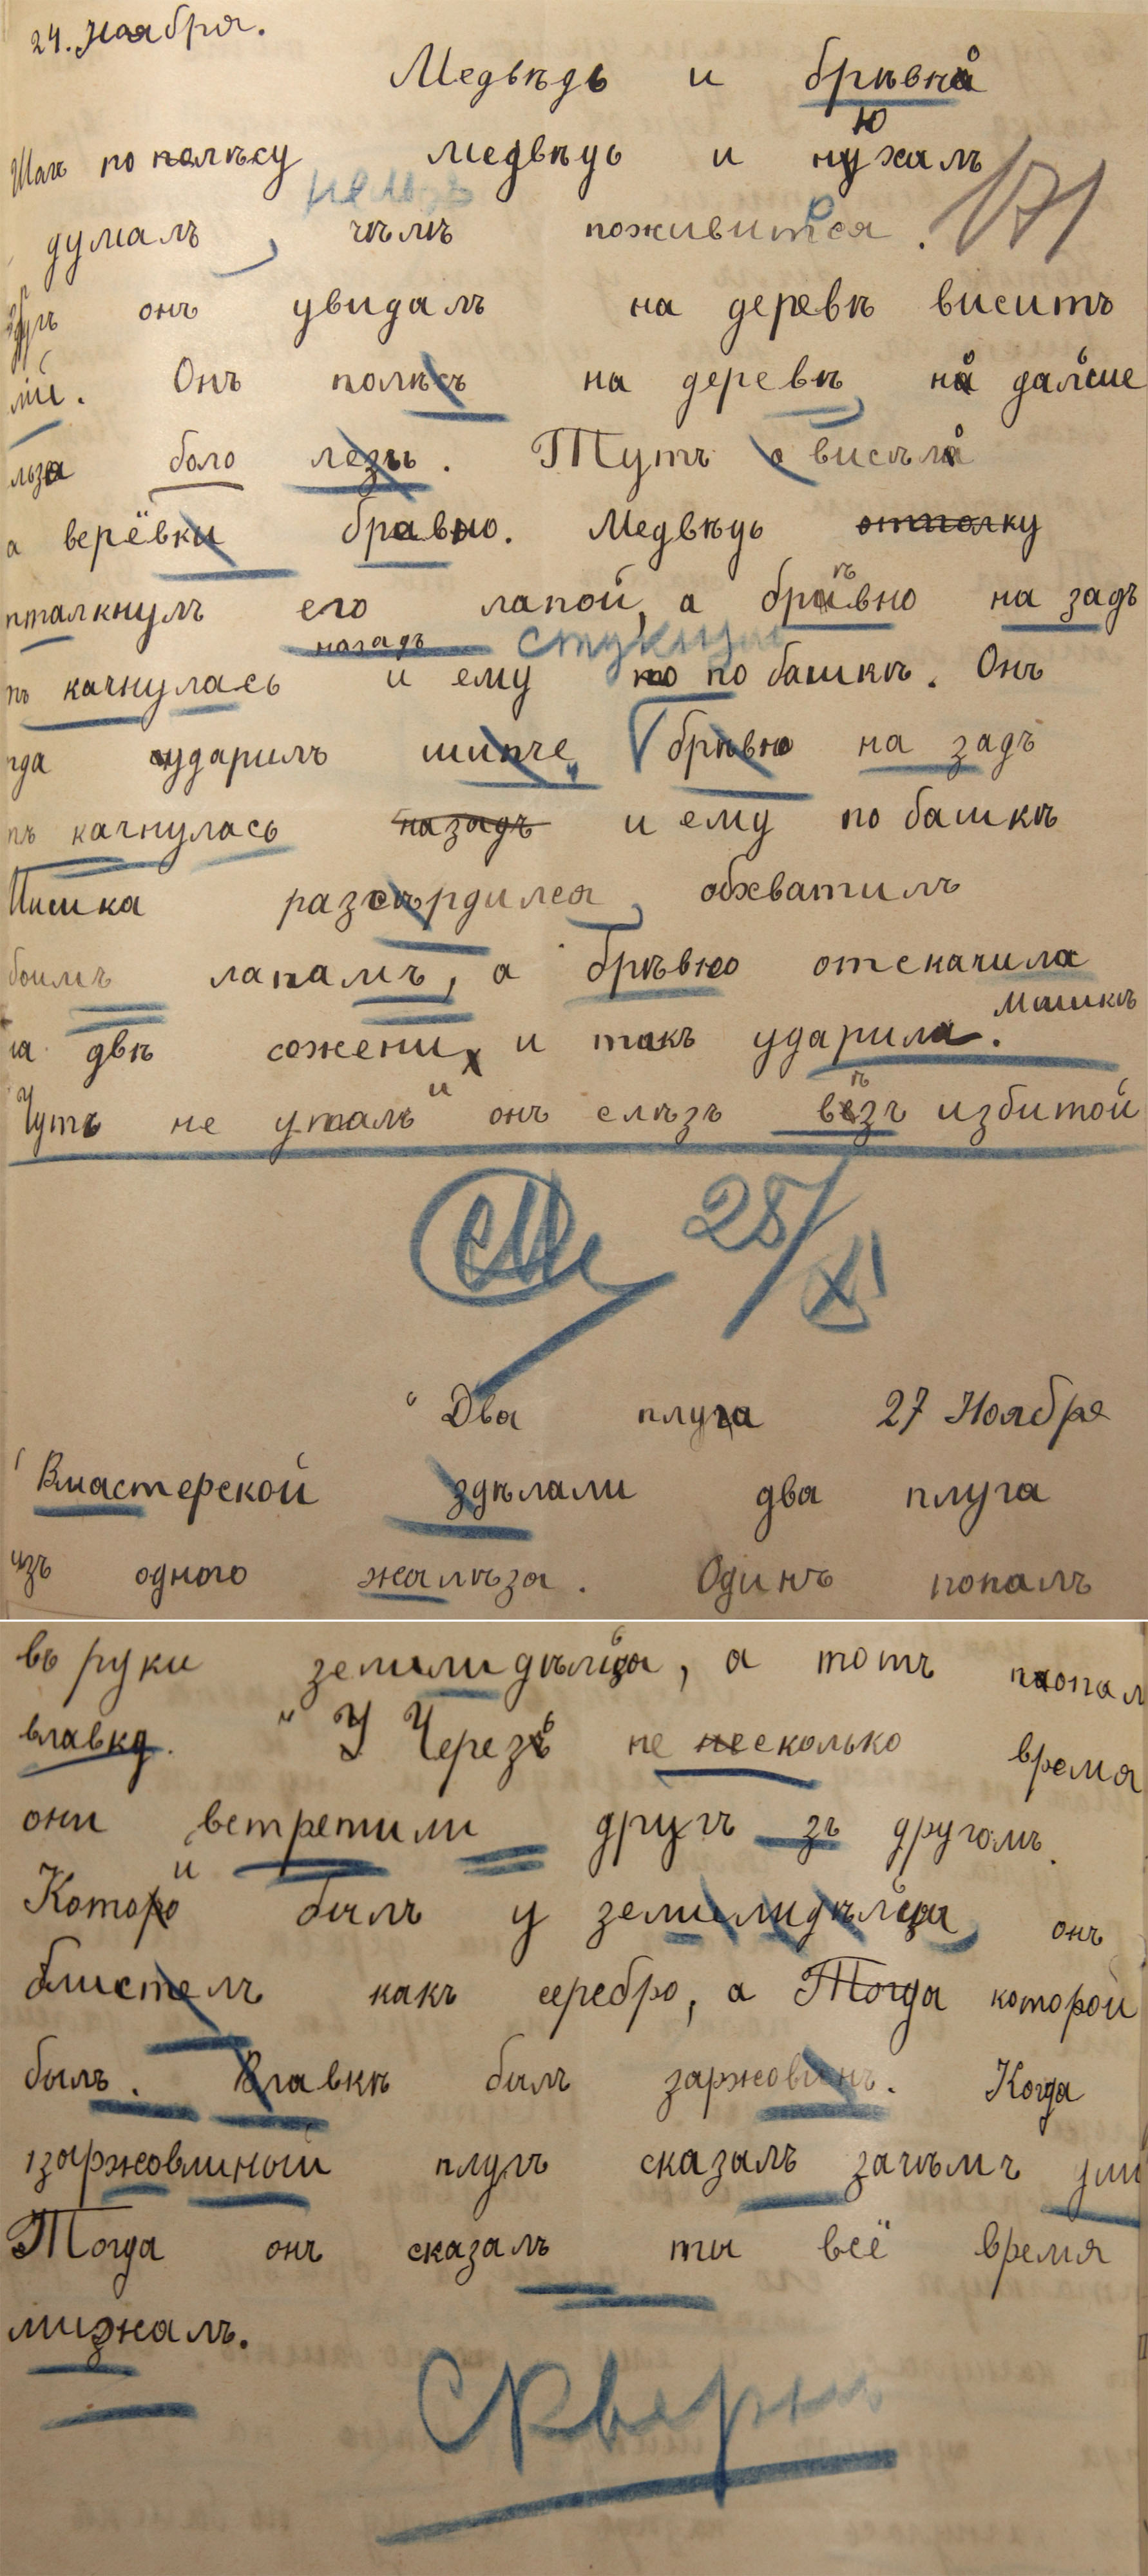 24. Ноября.
Медвѣдь и брѣвно
Шолъ по полѣсу медвѣдь и нюхалъ
думалъ, чѣмъ поживится.
онъ увидалъ на деревѣ виситъ
Онъ полѣсъ на деревѣ, но дальше
было лезть. Тутъ висѣло
а верёвки бравно. Медвѣдь оттолку
тталкнулъ его лапой, а брѣвно на задъ
назадъ стукнули
качнулась и ему по башкѣ. Онъ
ударилъ шипче брѣвно на задъ
качнулась назадъ и ему по башкѣ
Мишка разсѣрдился, обхватилъ
лапамъ, а брѣвно отскачила
Мишкѣ
на двѣ сожени и такъ ударила.
Чуть не упалъ и онъ слѣзъ вѣзъ избитой
28/XI
"Два плуга 27 Ноября
Вмастерской здѣлали два плуга
изъ одного жалѣза. Одинъ попалъ
въ руки землидѣльца, а тотъ попал
влавку. "У Черезъ не несколько время
они встретили другъ зъ другомъ.
Которой былъ у землидѣльца, онъ
блистелъ какъ серебро, а Тогда которой
былъ. Влавкѣ былъ заржовинъ. Когда
заржовлиный плугъ сказалъ зачѣмъ
Тогда онъ сказалъ ты всё время
лижалъ.
Скверно